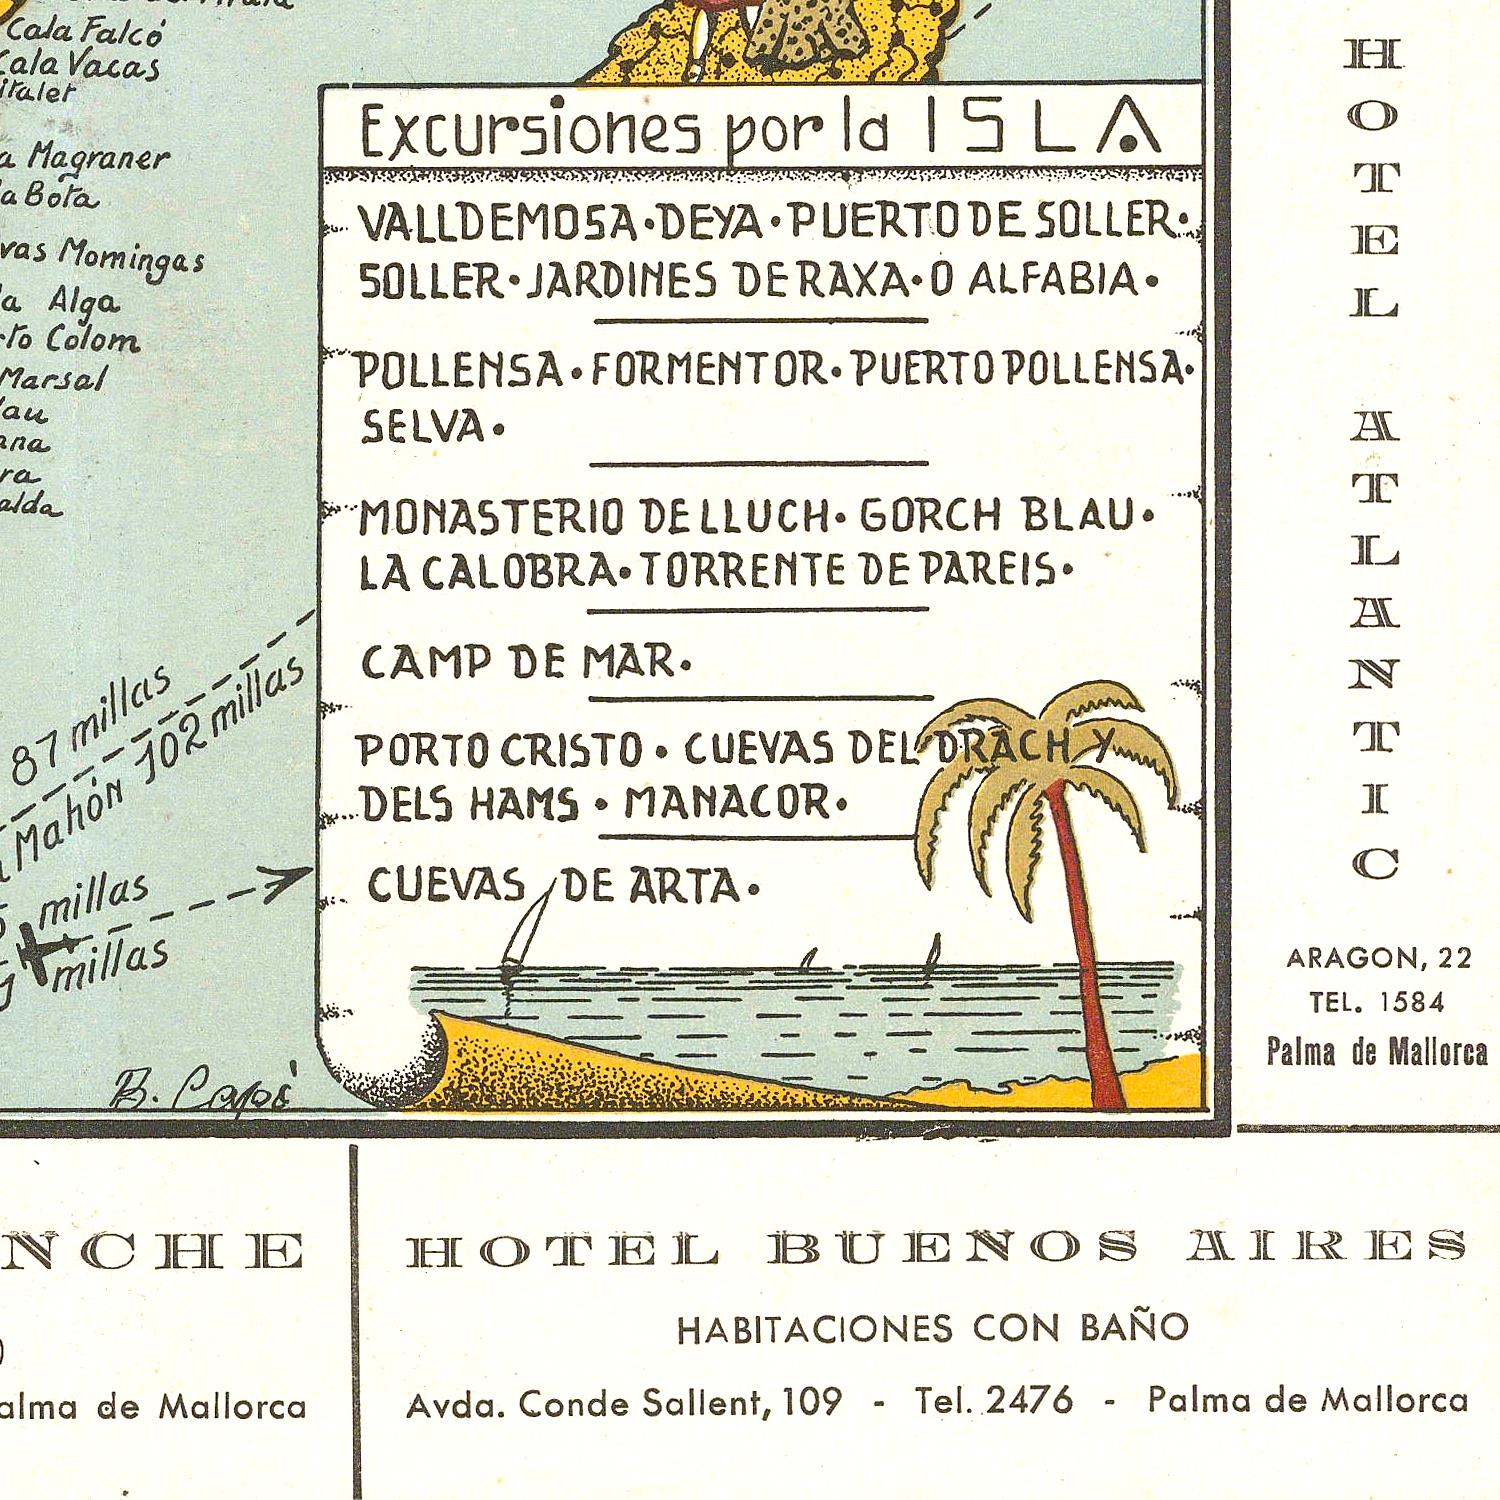 Cala Falcó
Cala Vacas
Magraner
Bota
Momingas
Alga
Colom
Marsal
87 millas
Mahón 102 millas
millas
millas
B. Capó
Excursiones por la ISLA
VALLDEMOSA·DEYA·PUERTO DE SOLLER·
SOLLER·JARDINES DE RAXA·O ALFABIA·
POLLENSA·FORMENTOR·PUERTO POLLENSA·
SELVA·
MONASTERIO DE LLUCH·GORCH BLAU·
LA CALOBRA·TORRENTE DE PAREIS·
CAMP DE MAR·
PORTO CRISTO·CUEVAS DEL DRACH Y
DELS HAMS·MANACOR·
CUEVAS DE ARTA·
HOTEL ATLANTIC
ARAGON, 22
TEL. 1584
Palma de Mallorca
NCHE
alma de Mallorca
HOTEL BUENOS AIRES
HABITACIONES CON BAÑO
Avda. Conde Sallent, 109 - Tel. 2476 - Palma de Mallorca